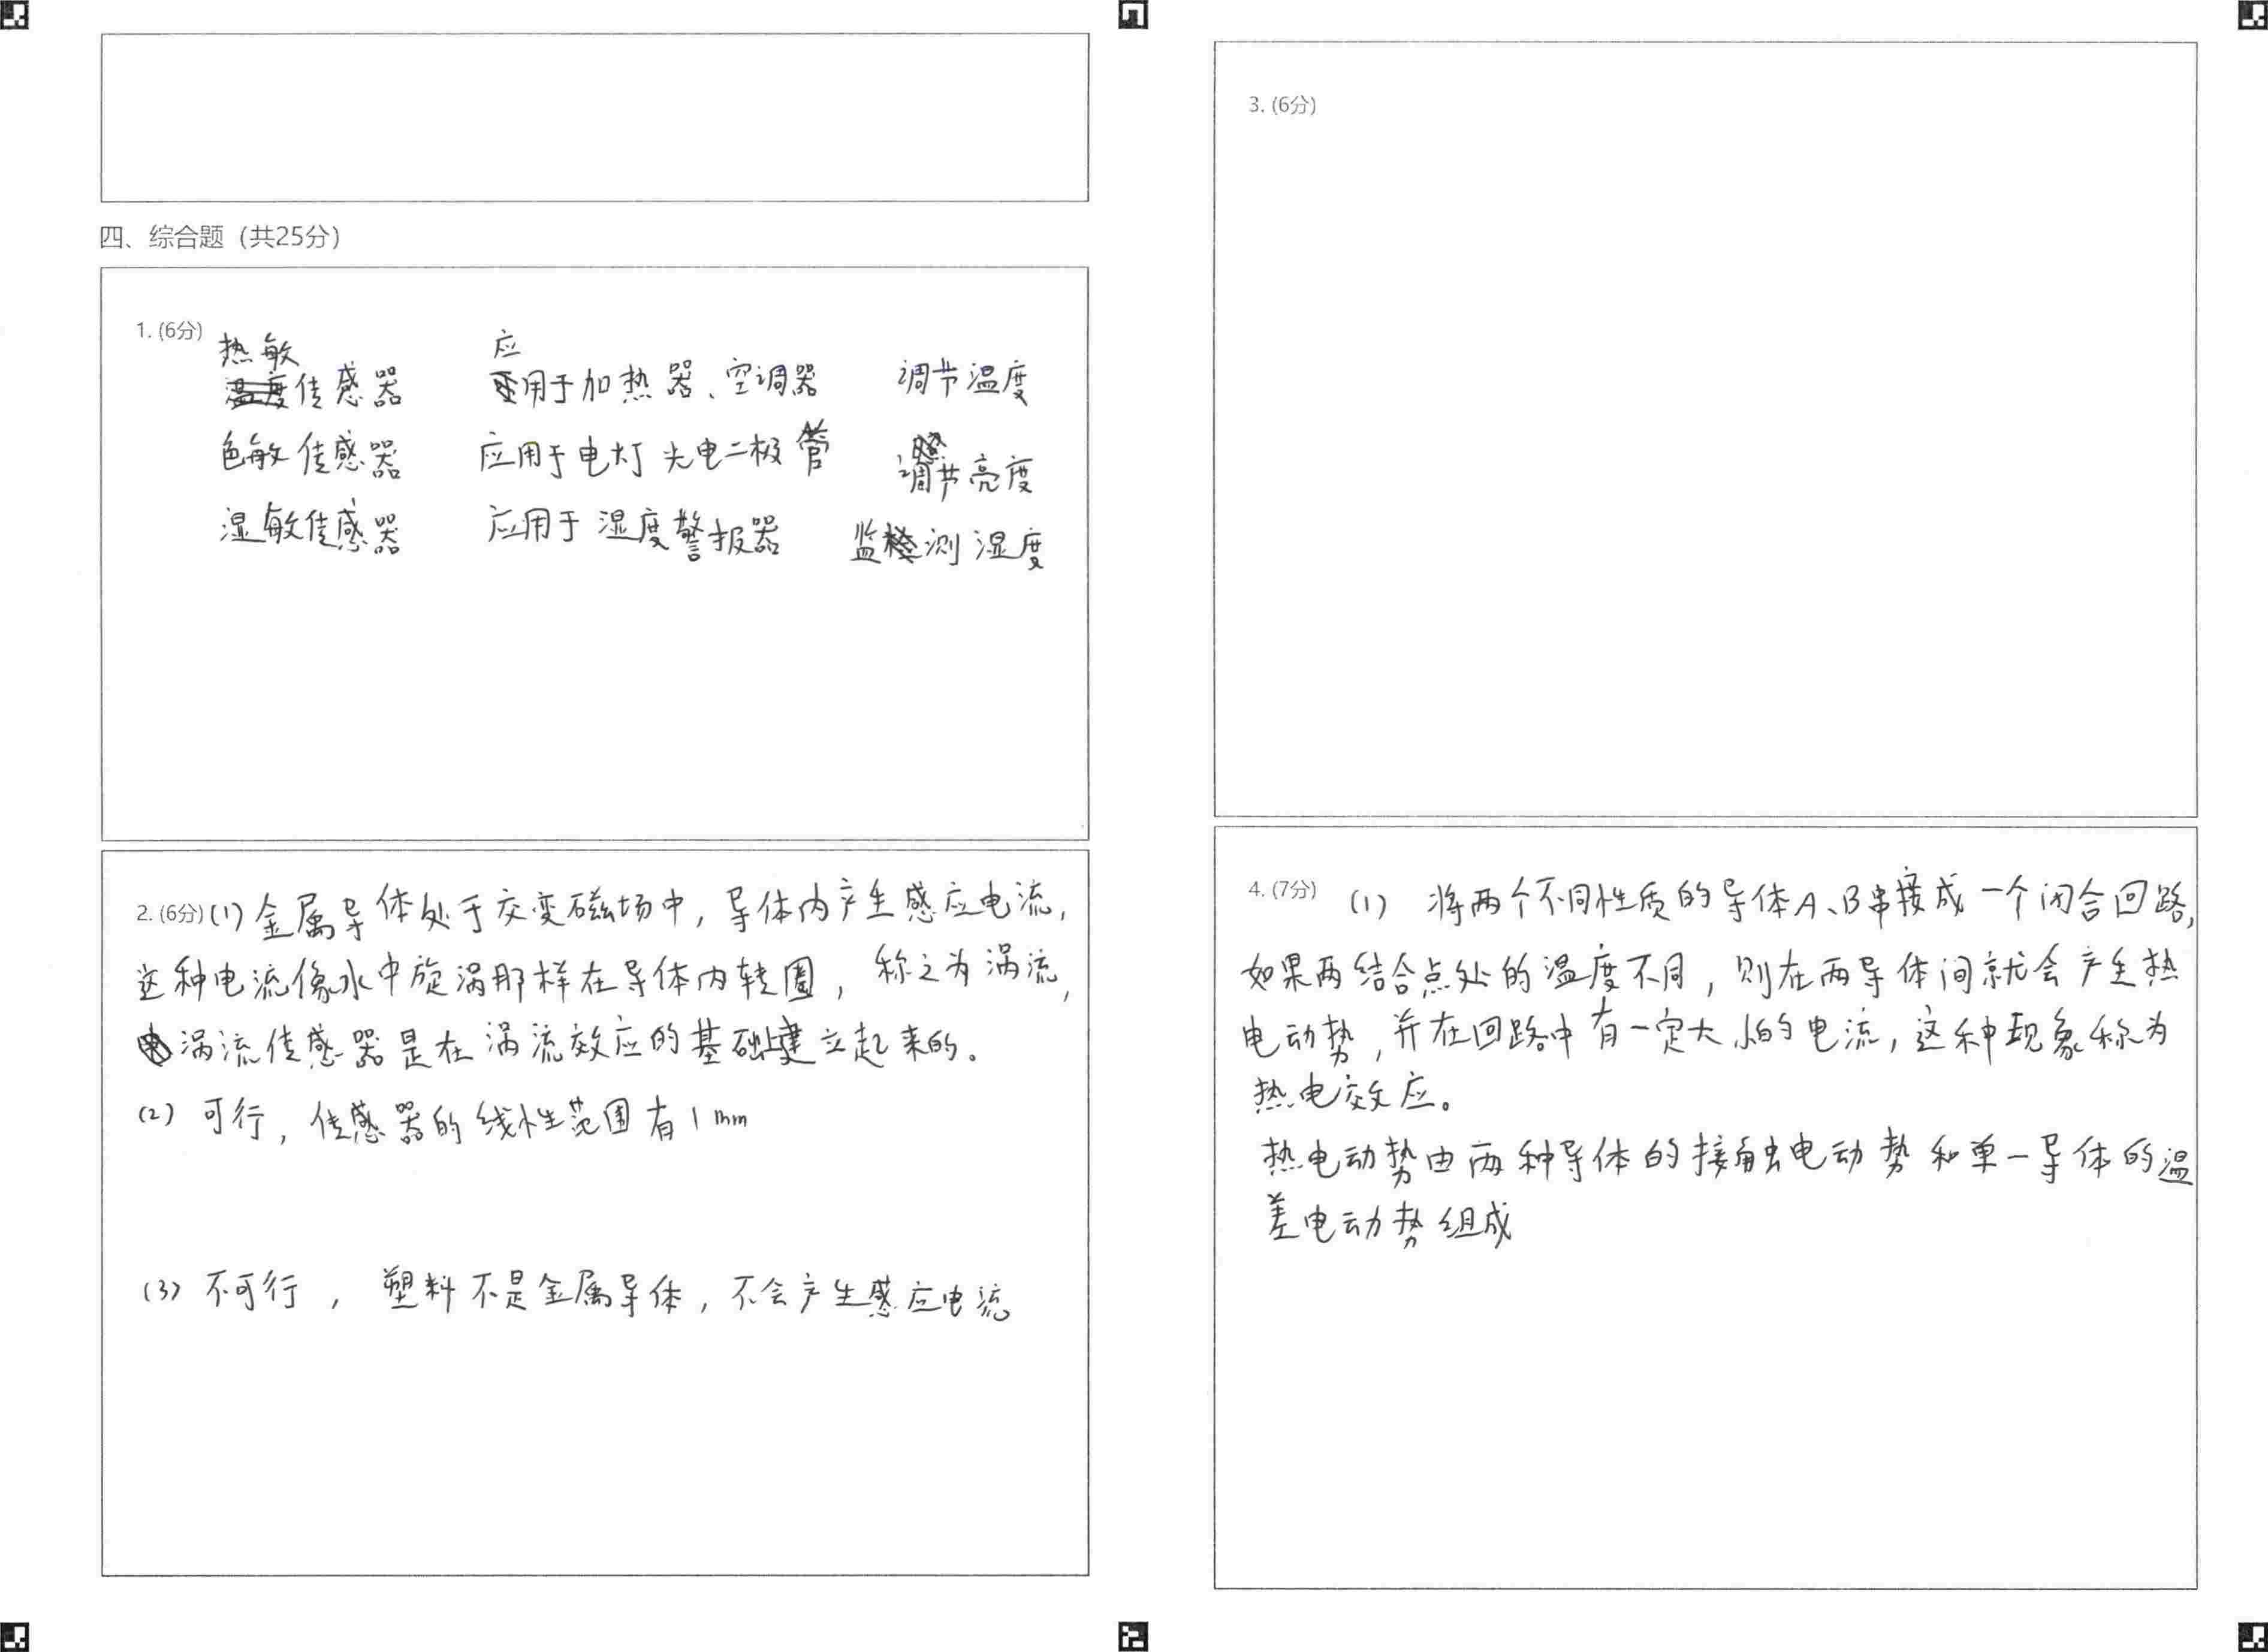 四、综合题（共25分）
1. (6分)
热敏 应
传感器 用于加热器、空调器 调节温度
色敏传感器 应用于电灯 光电二极管 调节亮度
湿敏传感器 应用于湿度警报器 监测湿度
2. (6分) (1) 金属导体处于交变磁场中，导体内产生感应电流，
这种电流像水中旋涡那样在导体内转圈，称之为涡流，
涡流传感器是在涡流效应的基础上建立起来的。
(2) 可行，传感器的线性范围有1mm
(3) 不可行，塑料不是金属导体，不会产生感应电流
3. (6分)
4. (7分) (1) 将两个不同性质的导体A、B串接成一个闭合回路，
如果两结合点处的温度不同，则在两导体间就会产生热
电动势，并在回路中有一定大小的电流，这种现象称为
热电效应。
热电动势由两种导体的接触电动势和单一导体的温
差电动势组成